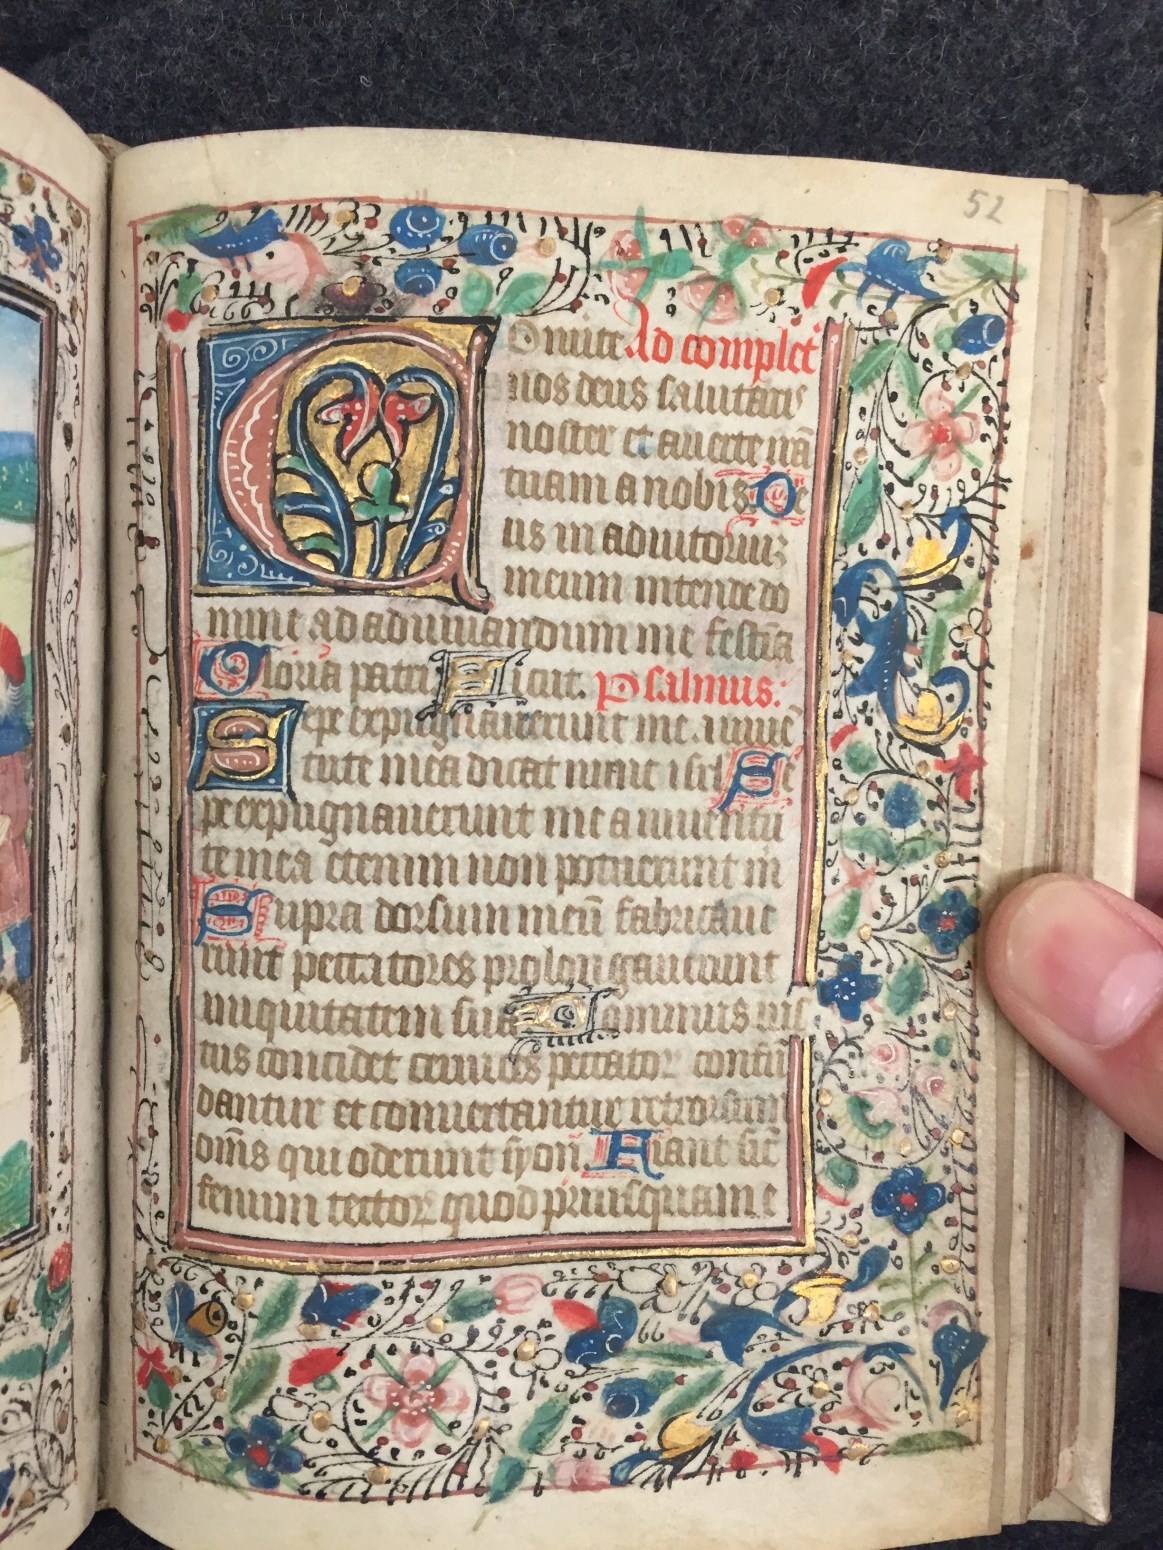 52
Conuerte Ad complet
nos deus salutaris
noster et auerte irā
tuam a nobis De
us in adiutoriuz
meum intende do
mine ad adiuuandum me festia
Gloria patri Sicut. Psalmus.
Sepe expugnauerunt me a iuuē
tute mea dicat nunc isrl Se
pe expugnauerunt me a iuuentu
te mea etenim non potuerunt m
Supra dorsum meū fabricaue
runt peccatores prolongauerunt
iniquitatem suā Dominus ius
tus concidet ceruices peccator confū
dantur et conuertantur retrorsum
oms qui oderunt syon. Fiant sic
fenum tector quod priusquam e